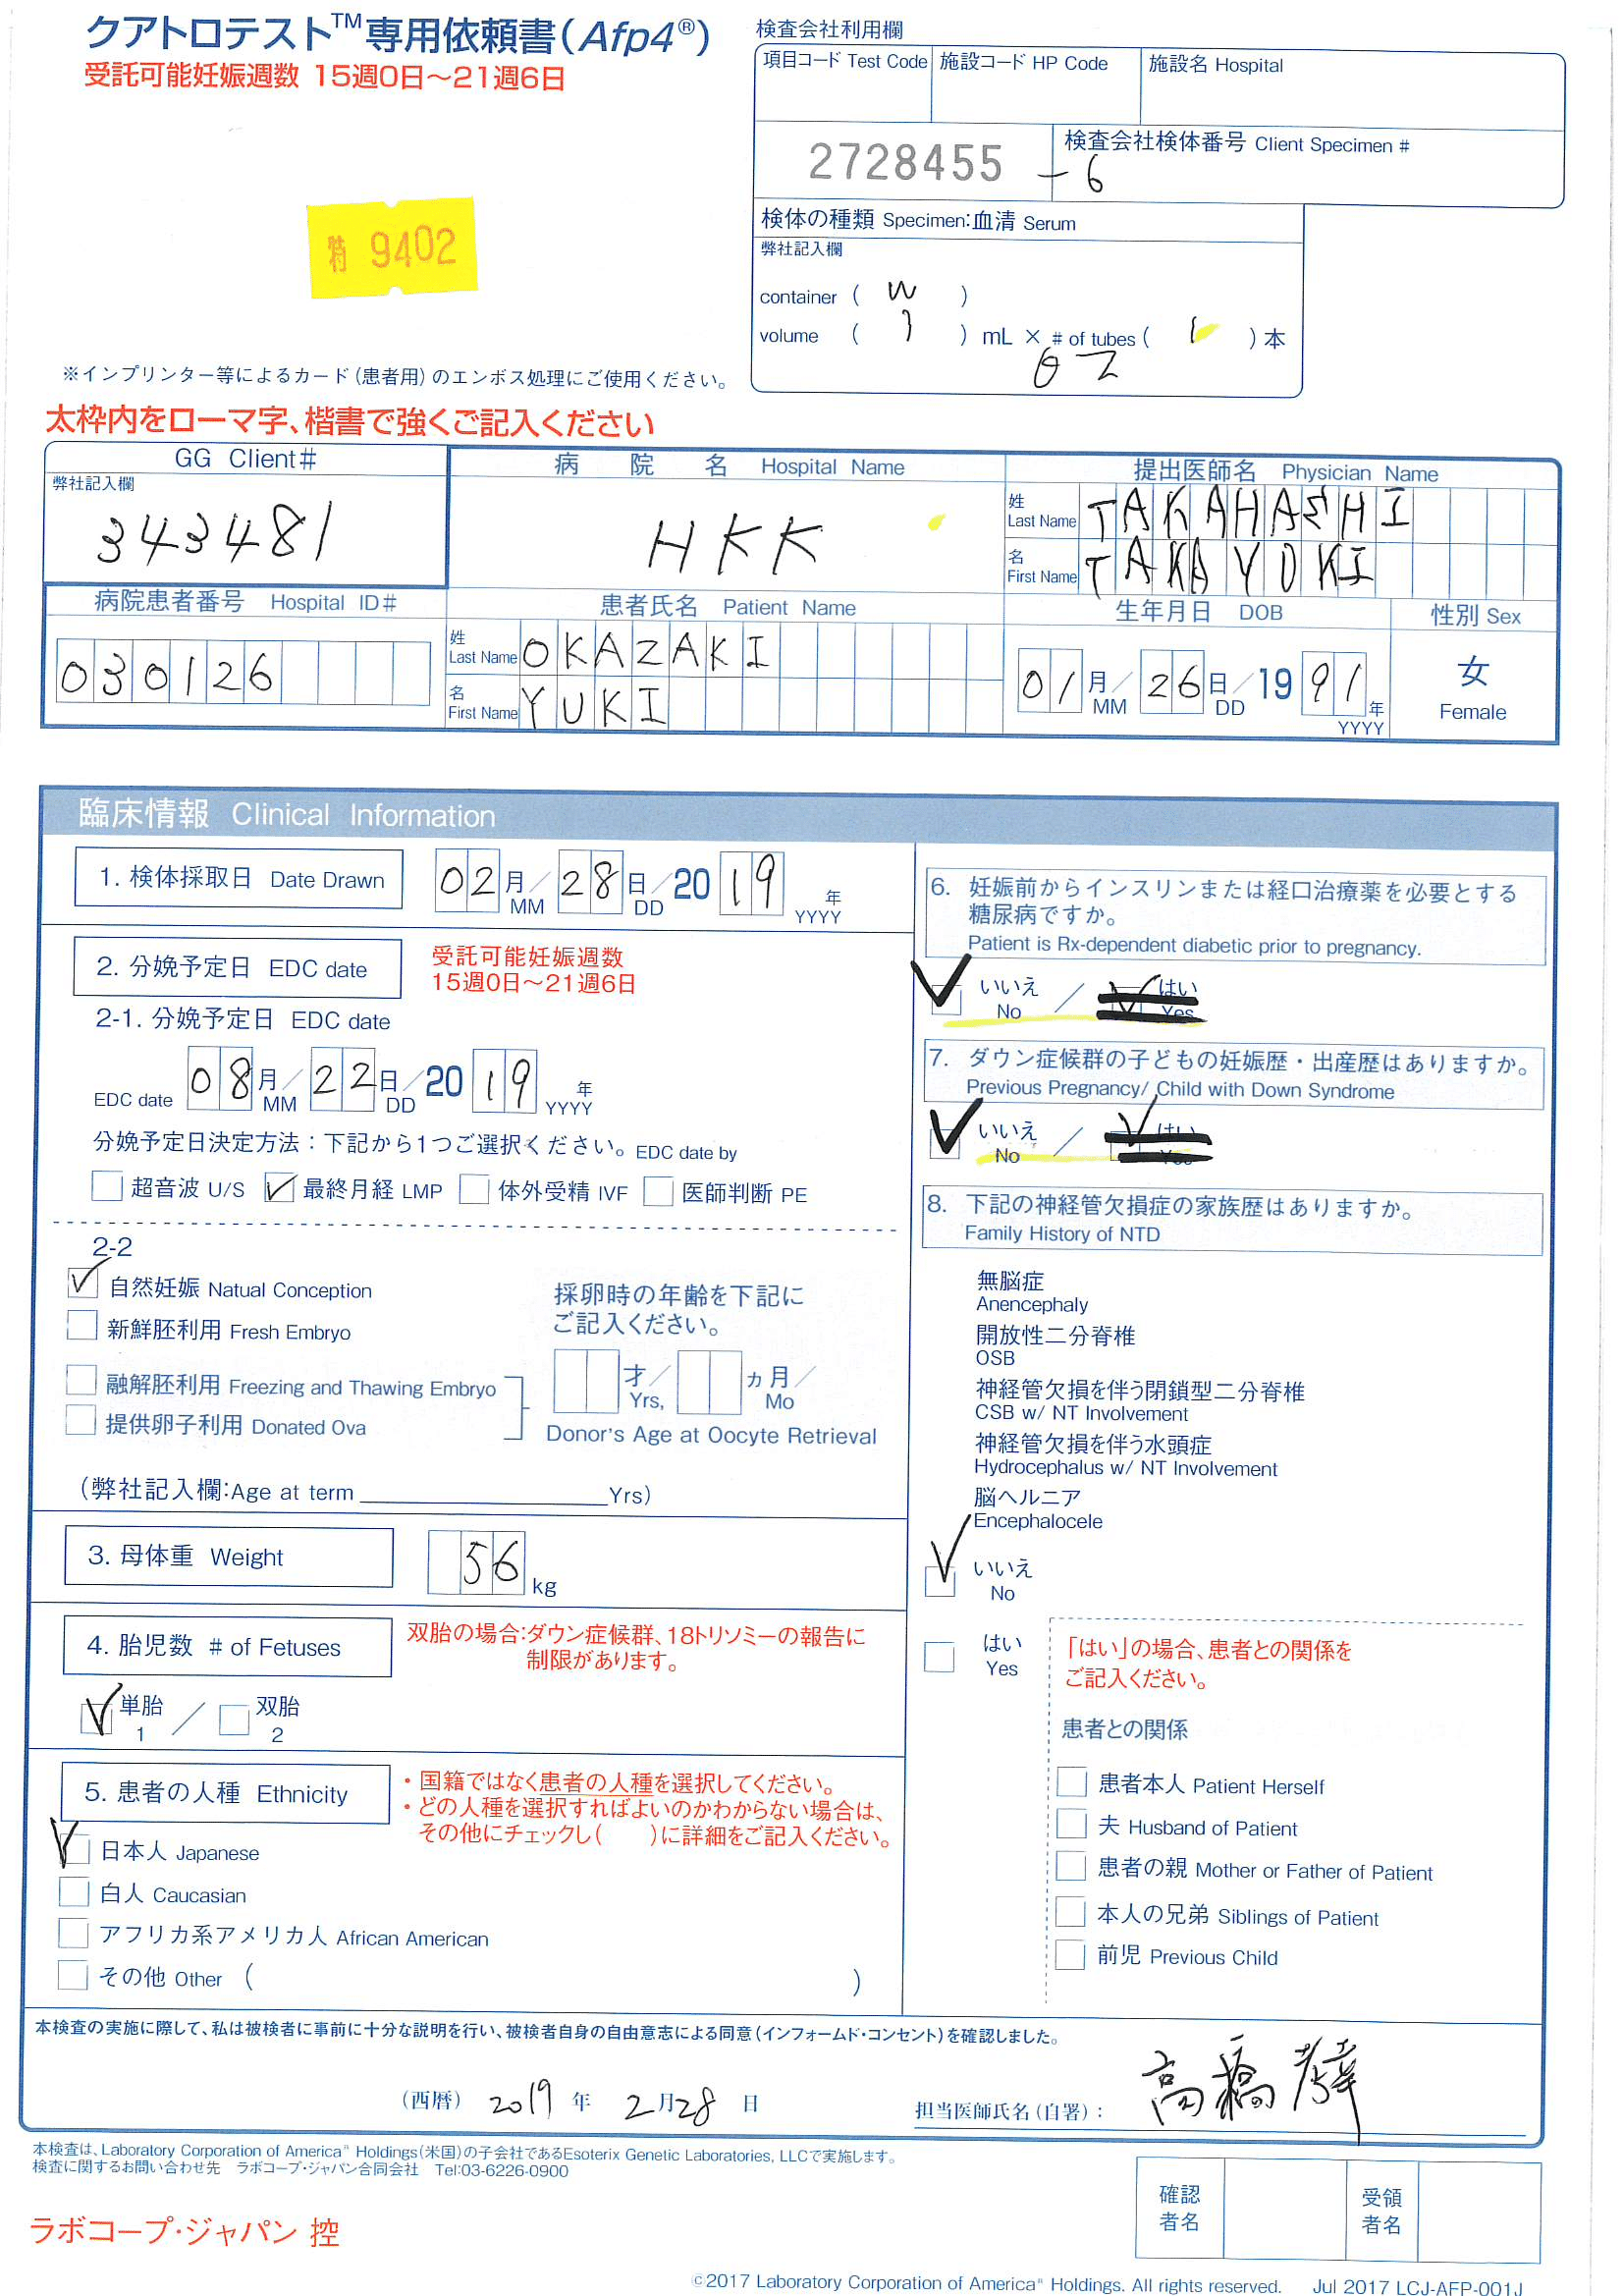 クアトロテスト™専用依頼書(Afp4®)
受託可能妊娠週数 15週0日～21週6日
検査会社利用欄
項目コード Test Code
施設コード HP Code
施設名 Hospital
2728455
検査会社検体番号 Client Specimen #
-6
検体の種類 Specimen:血清 Serum
弊社記入欄
特 9402
container ( W )
volume ( 1 ) mL × # of tubes ( 1 ) 本
※インプリンター等によるカード(患者用)のエンボス処理にご使用ください。
太枠内をローマ字、楷書で強くご記入ください
GG Client#
弊社記入欄
343481
病院名 Hospital Name
HKK
提出医師名 Physician Name
姓 Last Name TAKAHASHI
名 First Name TAKAYUKI
病院患者番号 Hospital ID#
030126
患者氏名 Patient Name
姓 Last Name OKAZAKI
名 First Name YUKI
生年月日 DOB
01 月 MM / 26 日 DD / 1991 年 YYYY
性別 Sex
女
Female
臨床情報 Clinical Information
1. 検体採取日 Date Drawn
02 月 MM / 28 日 DD / 2019 年 YYYY
2. 分娩予定日 EDC date
受託可能妊娠週数
15週0日～21週6日
2-1. 分娩予定日 EDC date
EDC date 08 月 MM / 22 日 DD / 2019 年 YYYY
分娩予定日決定方法：下記から1つご選択ください。EDC date by
超音波 U/S 最終月経 LMP 体外受精 IVF 医師判断 PE
2-2
自然妊娠 Natual Conception
新鮮胚利用 Fresh Embryo
融解胚利用 Freezing and Thawing Embryo
提供卵子利用 Donated Ova
採卵時の年齢を下記に
ご記入ください。
才 Yrs, / ヵ月 Mo /
Donor's Age at Oocyte Retrieval
(弊社記入欄:Age at term Yrs)
3. 母体重 Weight
56 kg
4. 胎児数 # of Fetuses
双胎の場合:ダウン症候群、18トリソミーの報告に
制限があります。
単胎 1 / 双胎 2
5. 患者の人種 Ethnicity
・国籍ではなく患者の人種を選択してください。
・どの人種を選択すればよいのかわからない場合は、
その他にチェックし( )に詳細をご記入ください。
日本人 Japanese
白人 Caucasian
アフリカ系アメリカ人 African American
その他 Other ( )
6. 妊娠前からインスリンまたは経口治療薬を必要とする
糖尿病ですか。
Patient is Rx-dependent diabetic prior to pregnancy.
いいえ No / はい Yes
7. ダウン症候群の子どもの妊娠歴・出産歴はありますか。
Previous Pregnancy/ Child with Down Syndrome
いいえ No / はい Yes
8. 下記の神経管欠損症の家族歴はありますか。
Family History of NTD
無脳症
Anencephaly
開放性二分脊椎
OSB
神経管欠損を伴う閉鎖型二分脊椎
CSB w/ NT Involvement
神経管欠損を伴う水頭症
Hydrocephalus w/ NT Involvement
脳ヘルニア
Encephalocele
いいえ
No
はい
Yes
「はい」の場合、患者との関係を
ご記入ください。
患者との関係
患者本人 Patient Herself
夫 Husband of Patient
患者の親 Mother or Father of Patient
本人の兄弟 Siblings of Patient
前児 Previous Child
本検査の実施に際して、私は被検者に事前に十分な説明を行い、被検者自身の自由意志による同意(インフォームド・コンセント)を確認しました。
(西暦) 2019 年 2 月 28 日
担当医師氏名(自署)： 高橋孝
本検査は、Laboratory Corporation of America® Holdings(米国)の子会社であるEsoterix Genetic Laboratories, LLCで実施します。
検査に関するお問い合わせ先 ラボコープ・ジャパン合同会社 Tel:03-6226-0900
確認者名
受領者名
ラボコープ・ジャパン 控
©2017 Laboratory Corporation of America® Holdings. All rights reserved. Jul 2017 LCJ-AFP-001J